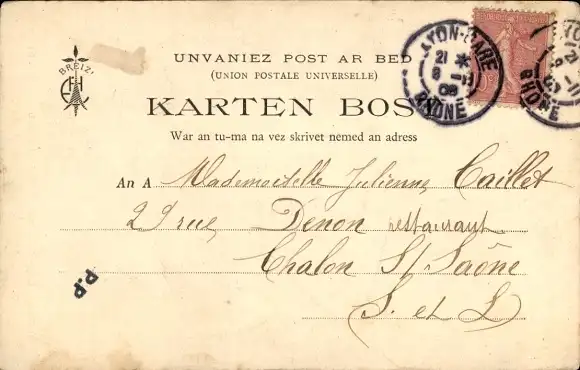 UNVANIEZ POST AR BED
(UNION POSTALE UNIVERSELLE)
BREIZ
KARTEN BOST
War an tu-ma na vez skrivet nemed an adress
LYON-GARE
21 *
8 - 11
RHÔNE
RHÔNE
An A Mademoiselle Julienne Caillet
29 rue Denon restaurant
Chalon S/ Saône
S. et L
P.P